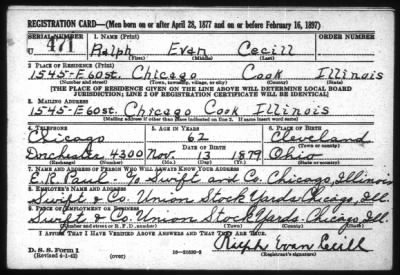 REGISTRATION CARD—(Men born on or after April 28, 1877 and on or before February 16, 1897)
SERIAL NUMBER 1. NAME (Print) ORDER NUMBER
U 471 Ralph Evan Cecill
(First) (Middle) (Last)
2. PLACE OF RESIDENCE (Print)
1545-E 60 st. Chicago Cook Illinois
(Number and street) (Town, township, village, or city) (County) (State)
[THE PLACE OF RESIDENCE GIVEN ON THE LINE ABOVE WILL DETERMINE LOCAL BOARD
JURISDICTION; LINE 2 OF REGISTRATION CERTIFICATE WILL BE IDENTICAL]
3. MAILING ADDRESS
1545-E 60 st. Chicago Cook Illinois
[Mailing address if other than place indicated on line 2. If same insert word same]
4. TELEPHONE 5. AGE IN YEARS 6. PLACE OF BIRTH
Chicago 62 Cleveland
DATE OF BIRTH (Town or county)
Dorchester 4300 Nov. 13 1879 Ohio
(Exchange) (Number) (Mo.) (Day) (Yr.) (State or country)
7. NAME AND ADDRESS OF PERSON WHO WILL ALWAYS KNOW YOUR ADDRESS
E.R. Paul c/o Swift and Co. Chicago, Illinois
8. EMPLOYER'S NAME AND ADDRESS
Swift & Co. Union Stock Yards Chicago, Ill.
9. PLACE OF EMPLOYMENT OR BUSINESS
Swift & Co. Union Stock Yards. Chicago, Ill.
(Number and street or R. F. D. number) (Town) (County) (State)
I AFFIRM THAT I HAVE VERIFIED ABOVE ANSWERS AND THAT THEY ARE TRUE.
D. S. S. Form 1
(Revised 4-1-42) (over) Ralph Evan Cecill
(Registrant's signature)